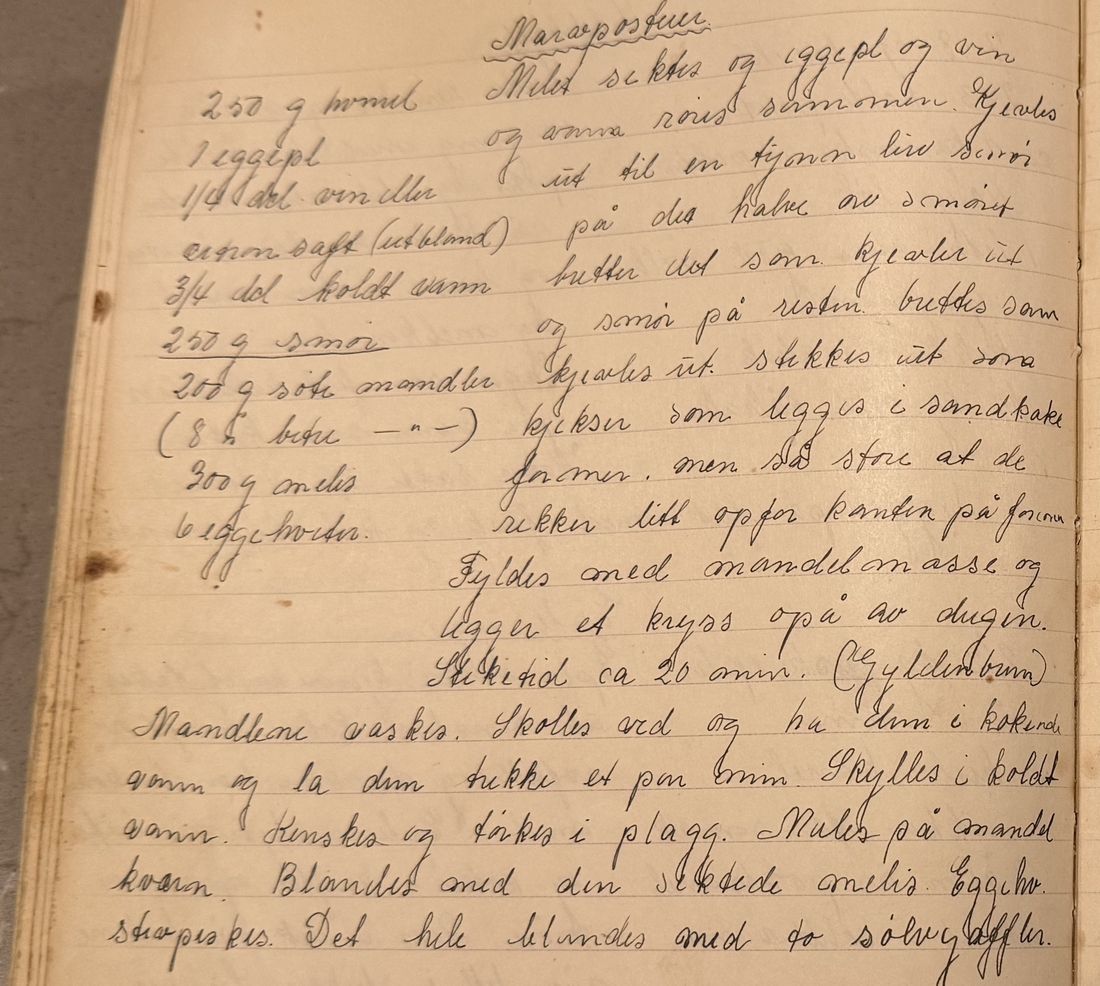 Mazapostuer.
250 g hvmel
1 eggepl
1/4 del vin eller
sitron saft (utbland)
3/4 del koldt vann
250 g smør
200 g søte mandler
(8 " betre — " —)
300 g melis
6 eggehviter.
Melet siktes og eggepl og vin
og vann røres sammen. Kjevles
ut til en tynn leiv smør
på det halve av smøret
bretter det sam. kjevler ut
og smør på resten. brettes sam
kjevles ut. stikkes ut som
kjekser som legges i sandkake
former. men så store at de
rekker litt opfor kanten på formen
Fyldes med mandelmasse og
legger et kryss opå av deigen.
Steketid ca 20 min. (Gyldenbrun)
Mandlene vaskes. Skolles ved og ha dem i kokende
vann og la dem trekke et par min. Skylles i koldt
vann. Renskes og tørkes i plagg. Males på mandel
kværn. Blandes med den siktede melis. Eggehv.
stivpiskes. Det hele blandes med to sølvgaffler.